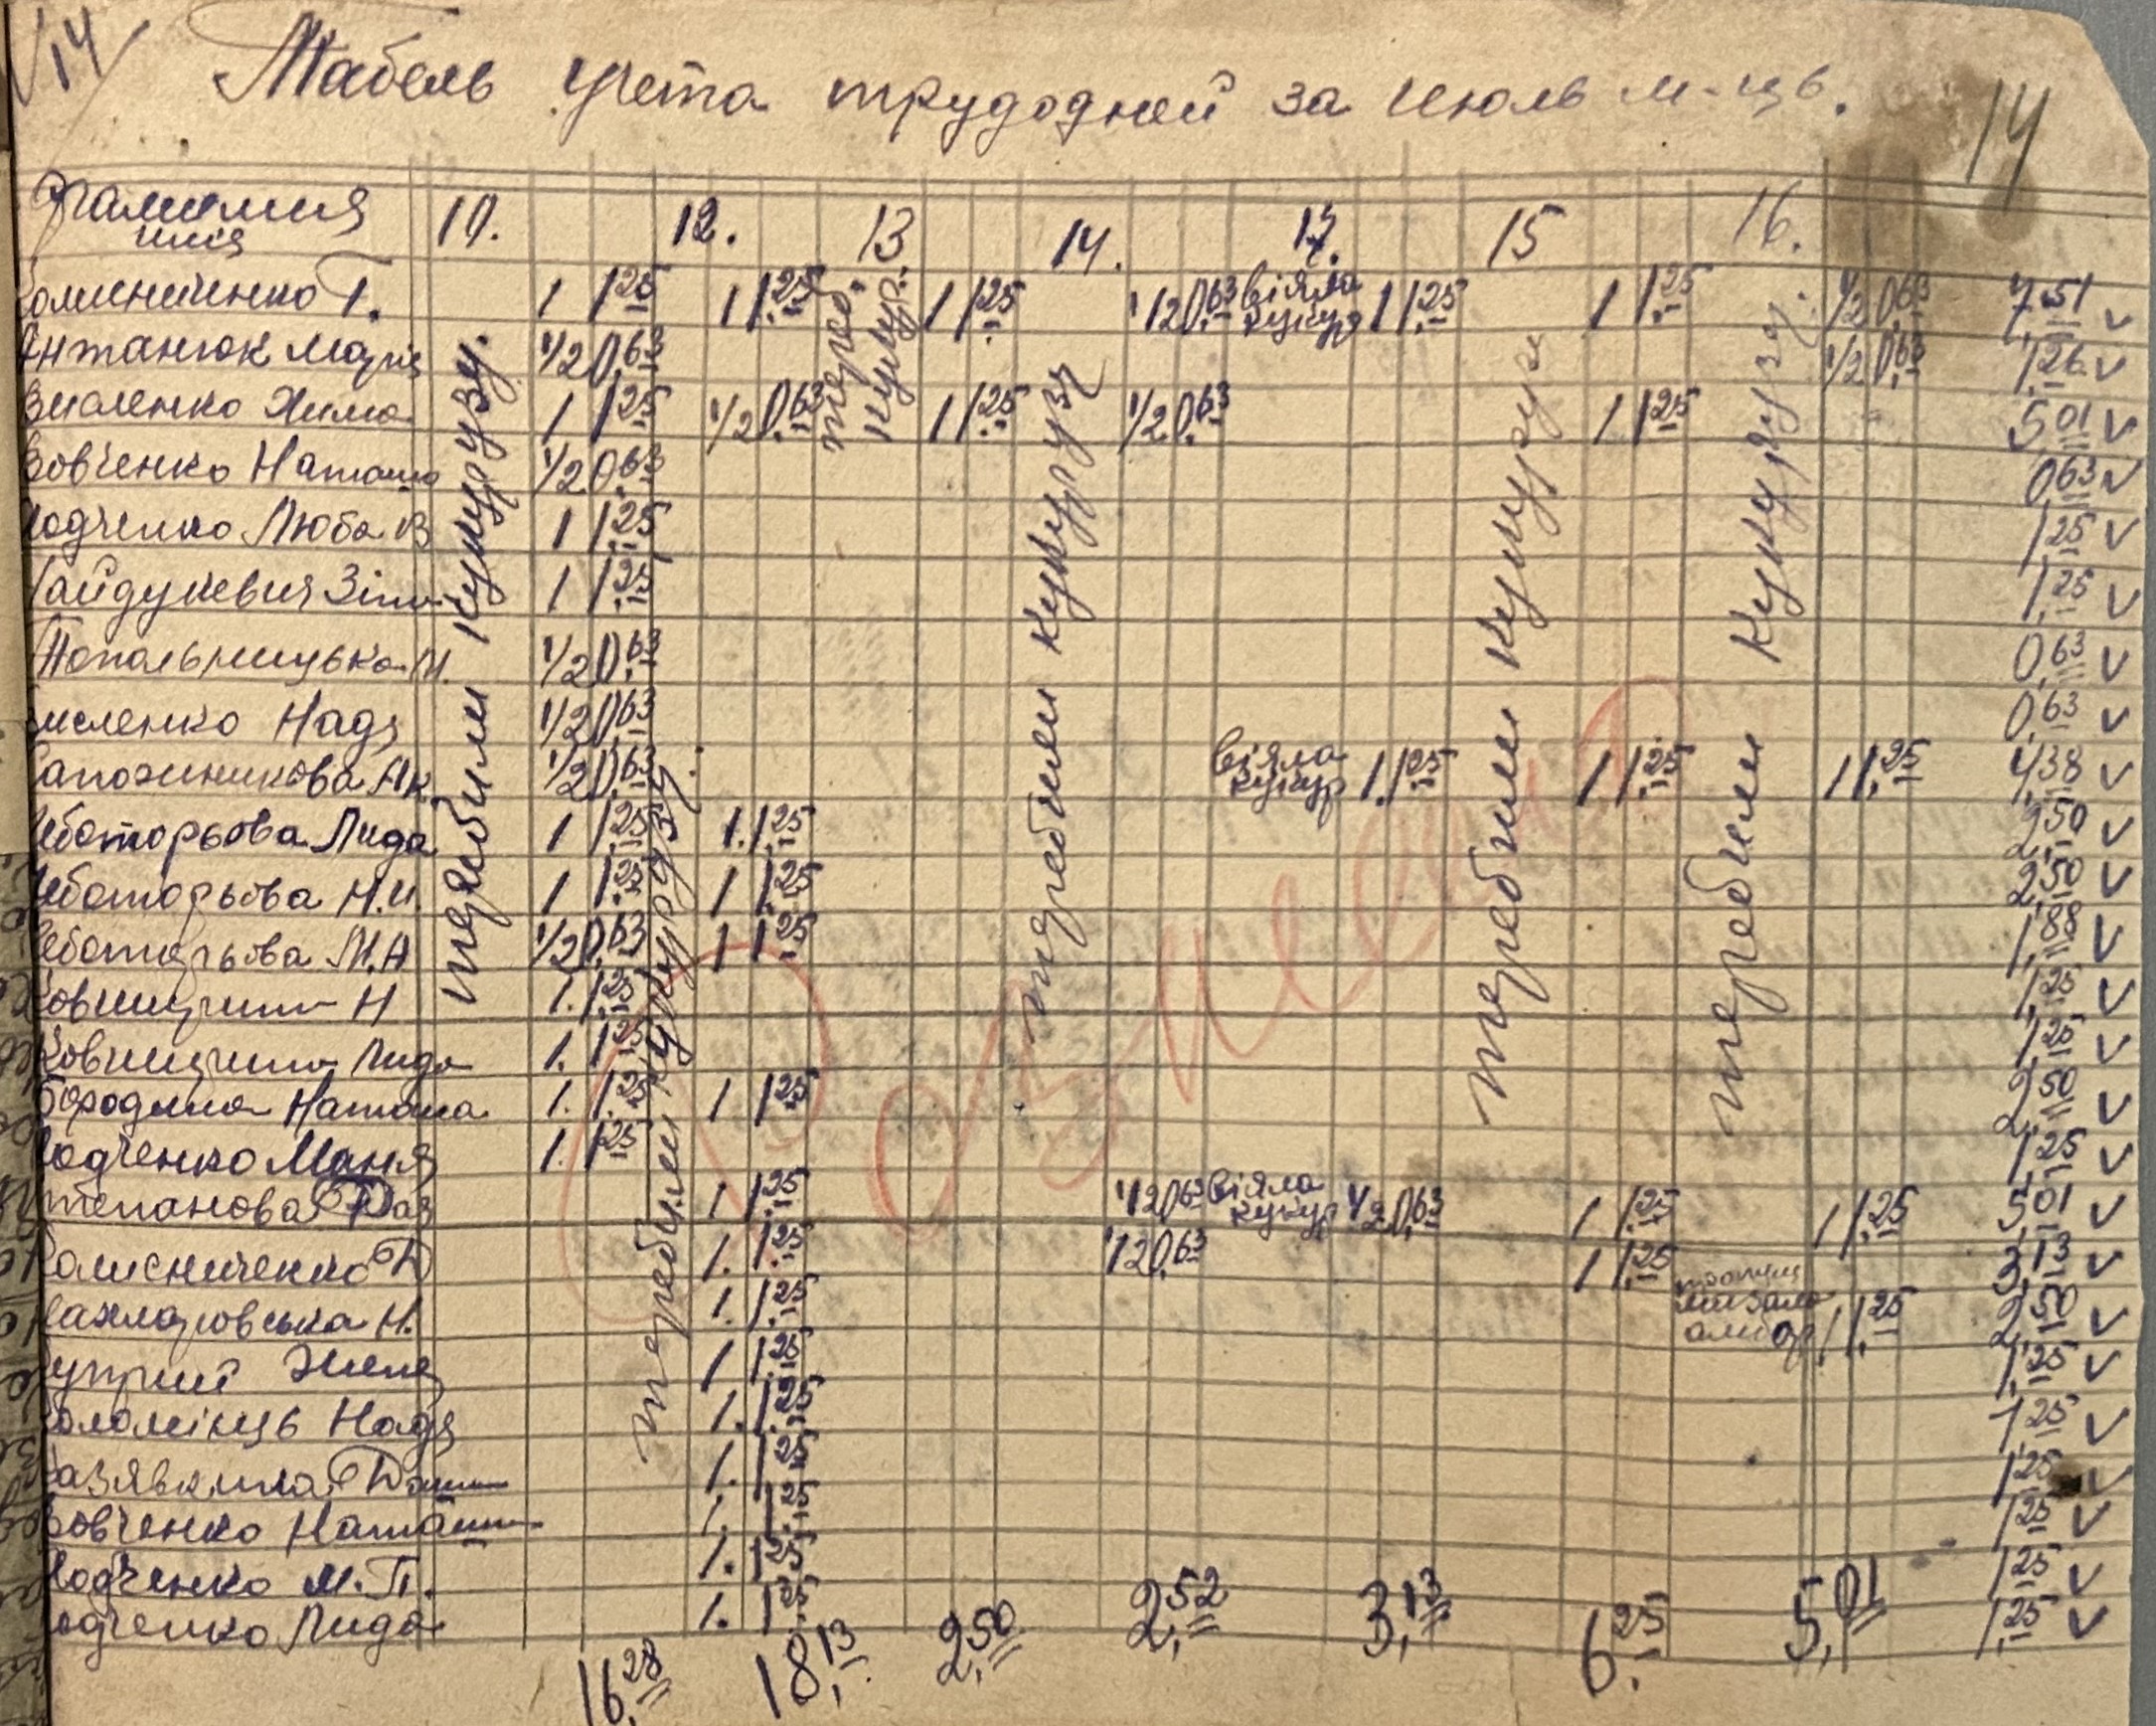 14
Табель учета трудодней за июль м-ць.
14
Фамилия 10. 12. 13 14. 17. 15 16.
имя
теребили кукурузу.
теребили кукурузу.
тереб. кукур.
теребили кукурузу
теребили кукурузу
теребили кукурузу.
Коломениченко Г. 1 1,25 1 1,25 1 1,25 1/2 0,63 віяла кукур 1 1,25 1 1,25 1/2 0,63 7,51 v
Антанюк Марія 1/2 0,63 1/2 0,63 1,26 v
Хима 1 1,25 1/2 0,63 1 1,25 1/2 0,63 1 1,25 5,01 v
Вовченко Наташа 1/2 0,63 0,63 v
Ходченко Люба В 1 1,25 1,25 v
Гайдукевич Зіна 1 1,25 1,25 v
Топальницька М. 1/2 0,63 0,63 v
Надя 1/2 0,63 0,63 v
Сапожникова Ак. 1/2 0,63 віяла кукур 1 1,25 1 1,25 1 1,25 4,38 v
Чеботарьова Лида 1 1,25 1. 1,25 2,50 v
Чеботарьова Н.И. 1 1,25 1 1,25 2,50 v
Чеботарьова М.А 1/2 0,63 1 1,25 1,88 v
Н 1. 1,25 1,25 v
Лида 1. 1,25 1,25 v
Бородина Наташа 1. 1,25 1 1,25 2,50 v
Ходченко Маня 1. 1,25 1,25 v
Степанова Фаз 1 1,25 1/2 0,63 віяла кукур 1/2 0,63 1 1,25 1 1,25 5,01 v
Ф 1. 1,25 1/2 0,63 1 1,25 3,13 v
Н. 1. 1,25 мазала амбар 1 1,25 2,50 v
Куприй 1 1,25 1,25 v
Коломієць Надя 1. 1,25 1,25 v
1. 1,25 1,25 v
Вовченко Наташа 1. 1,25 1,25 v
Ходченко М.П. 1. 1,25 1,25 v
Ходченко Лида 1. 1,25 1,25 v
16,28 18,13 2,50 2,52 3,13 6,25 5,01